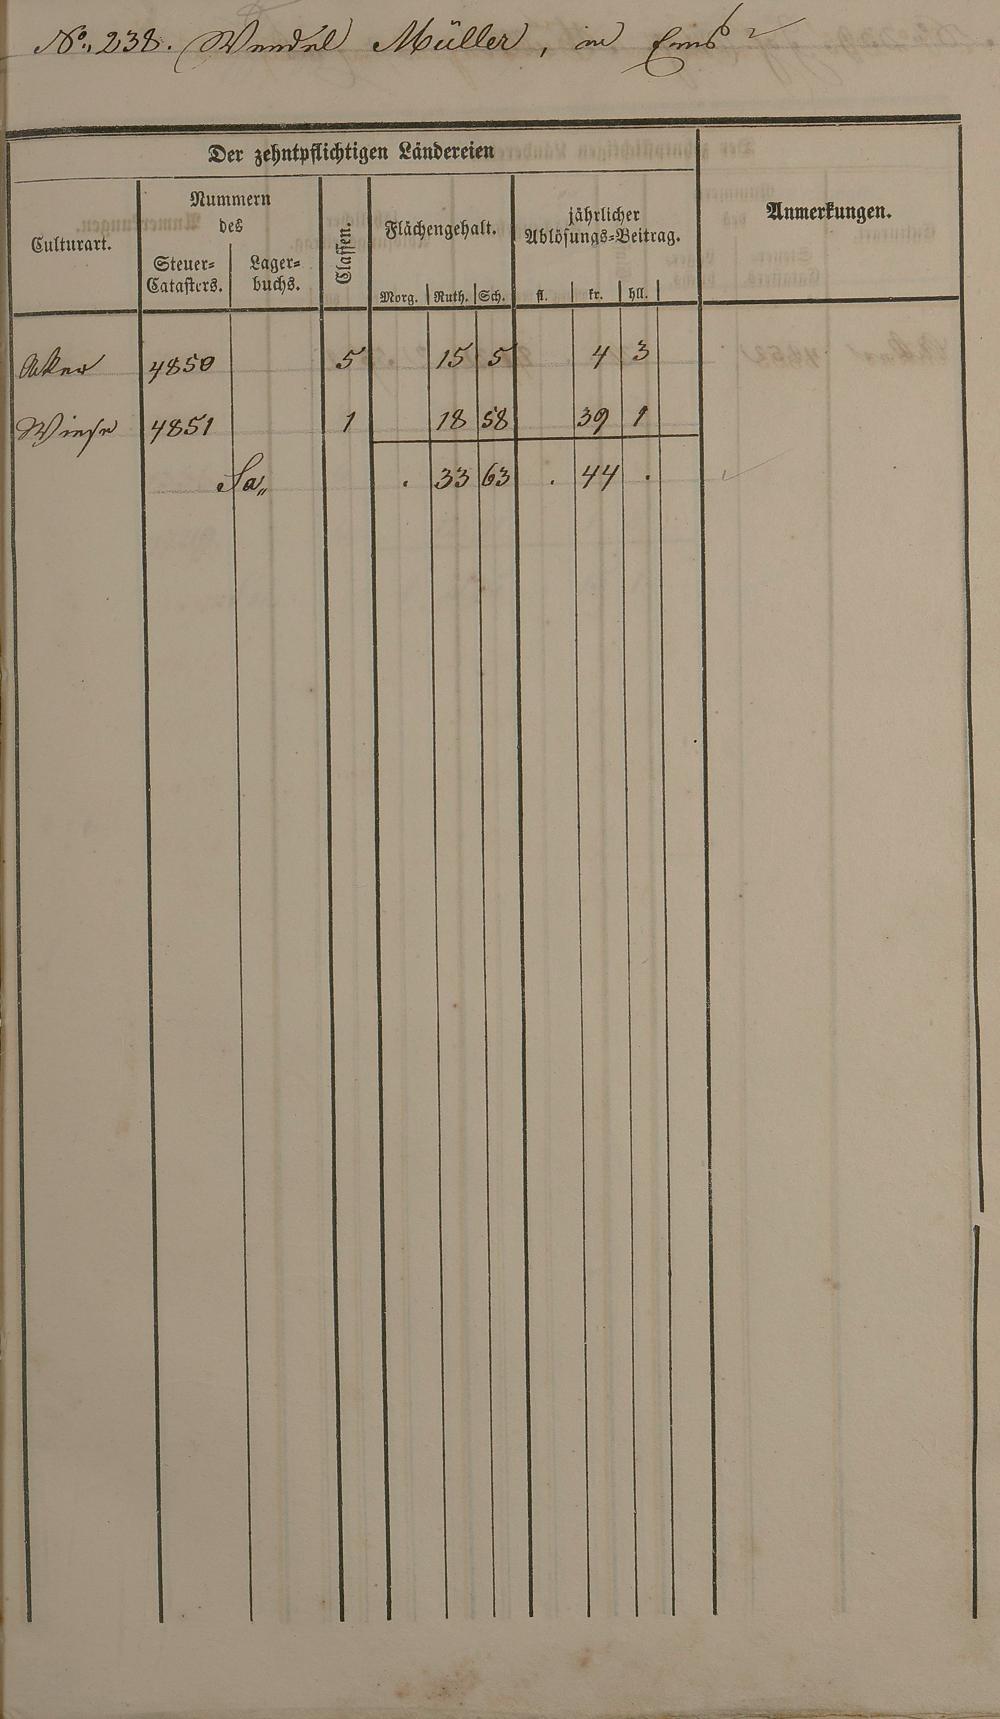 No. 238. Wendel Müller, in Ems
Der zehntpflichtigen Ländereien
Anmerkungen.
Culturart.
Nummern
des
Steuer-
Catasters.
Lager-
buchs.
Classen.
Flächengehalt.
Morg. Ruth. Sch.
jährlicher
Ablösungs-Beitrag.
fl. kr. hll.
Aker 4850 5 15 5 4 3
Wiese 4851 1 18 58 39 1
Sa,, . 33 63 . 44 .